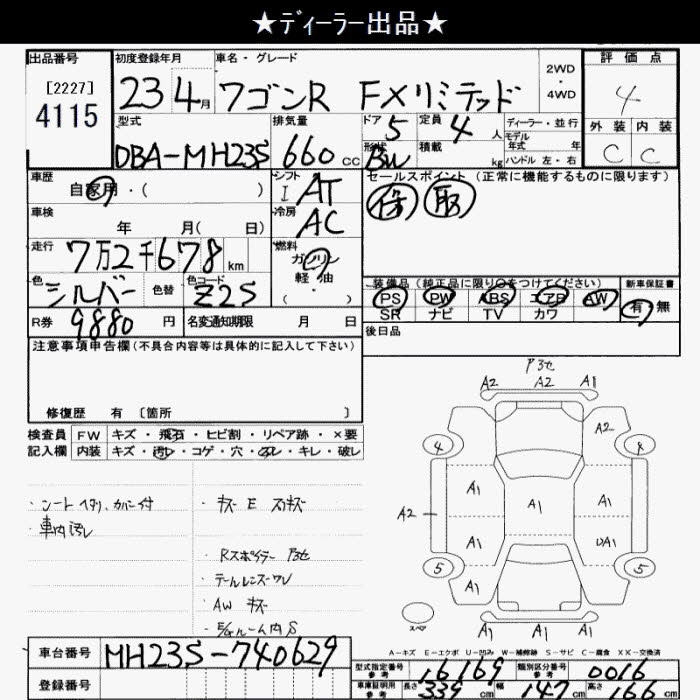 ★ディーラー出品★
出品番号 初度登録年月 車名・グレード 評価点
[2227]
4115
23 4月 ワゴンR FXリミテッド 2WD・4WD 4
型式 排気量 ドア 定員 ディーラー・並行 外装 内装
DBA-MH23S 660cc 5 4人 モデル年式 年 C C
形状 積載 kg ハンドル 左・右
BW
車歴 シフト セールスポイント (正常に機能するものに限ります)
自家用・( ) I AT 保 取
車検 冷房
年 月( 日) AC
走行 燃料
7万2千678km ガソリン
軽・油
( ・ )
色 色替 色コード
シルバー Z2S
装備品 (純正品に限り○をつけてください) 新車保証書
PS PW ABS エアB AW 有・無
SR ナビ TV カワ
R券 9880円 名変通知期限 月 日
後日品
注意事項申告欄(不具合内容等は具体的に記入して下さい)
修復歴 有 [箇所 ]
検査員 FW キズ・飛石・ヒビ割・リペア跡・×要
記入欄 内装 キズ・汚レ・コゲ・穴・スレ・キレ・破レ
・シートヘタリ、カバー付
・車内汚レ
・キズ E スリキズ
・Rスポイラー
・テールレンズワレ
・AW キズ
・E/gルーム内S
A2 A2 A1
4 A2 4
A1 A1 A1
A2
A1 DA1
5 A1 5
A1 A1 A1
スペア
A-キズ E-エクボ U-凹み W-補修跡 S-サビ C-腐食 XX-交換済
車台番号 MH23S-740629
登録番号
型式指定番号 参考 16169 類別区分番号 参考 0016
車庫証明用 参考 長さ 339cm 幅 147cm 高さ 166cm